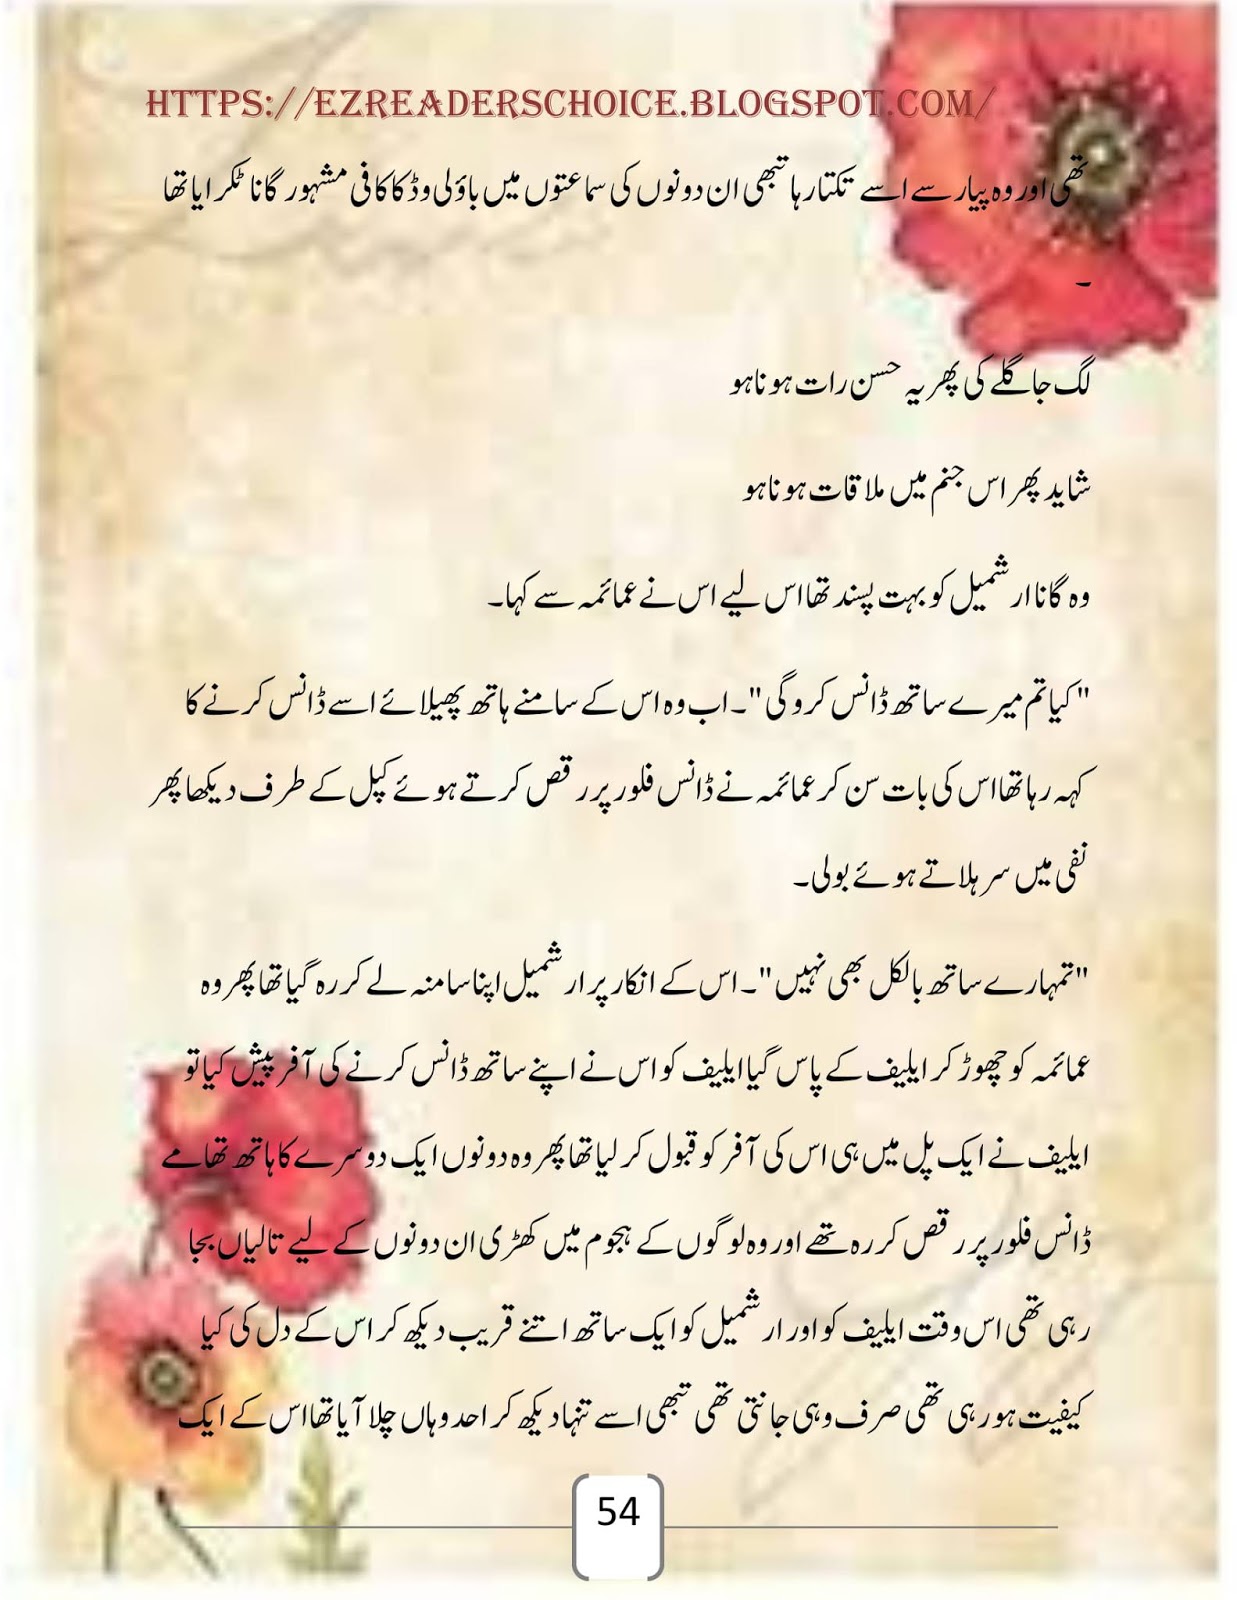 HTTPS://EZREADERSCHOICE.BLOGSPOT.COM/
تھی اور وہ پیار سے اسے تکتا رہا تبھی ان دونوں کی سماعتوں میں باؤلی وڈ کا کافی مشہور گانا ٹکرایا تھا
۔
لگ جا گلے کی پھر یہ حسن رات ہو نا ہو
شاید پھر اس جنم میں ملاقات ہو نا ہو
وہ گانا ارشمیل کو بہت پسند تھا اس لیے اس نے عمائمہ سے کہا۔
"کیا تم میرے ساتھ ڈانس کرو گی"۔ اب وہ اس کے سامنے ہاتھ پھیلائے اسے ڈانس کرنے کا
کہہ رہا تھا اس کی بات سن کر عمائمہ نے ڈانس فلور پر رقص کرتے ہوئے کپل کے طرف دیکھا پھر
نفی میں سر ہلاتے ہوئے بولی۔
"تمہارے ساتھ بالکل بھی نہیں"۔ اس کے انکار پر ارشمیل اپنا سا منہ لے کر رہ گیا تھا پھر وہ
عمائمہ کو چھوڑ کر ایلیف کے پاس گیا ایلیف کو اس نے اپنے ساتھ ڈانس کرنے کی آفر پیش کیا تو
ایلیف نے ایک پل میں ہی اس کی آفر کو قبول کر لیا تھا پھر وہ دونوں ایک دوسرے کا ہاتھ تھامے
ڈانس فلور پر رقص کر رہ تھے اور وہ لوگوں کے ہجوم میں کھڑی ان دونوں کے لیے تالیاں بجا
رہی تھی اس وقت ایلیف کو اور ارشمیل کو ایک ساتھ اتنے قریب دیکھ کر اس کے دل کی کیا
کیفیت ہو رہی تھی صرف وہی جانتی تھی تبھی اسے تنہا دیکھ کر احد وہاں چلا آیا تھا اس کے ایک
54